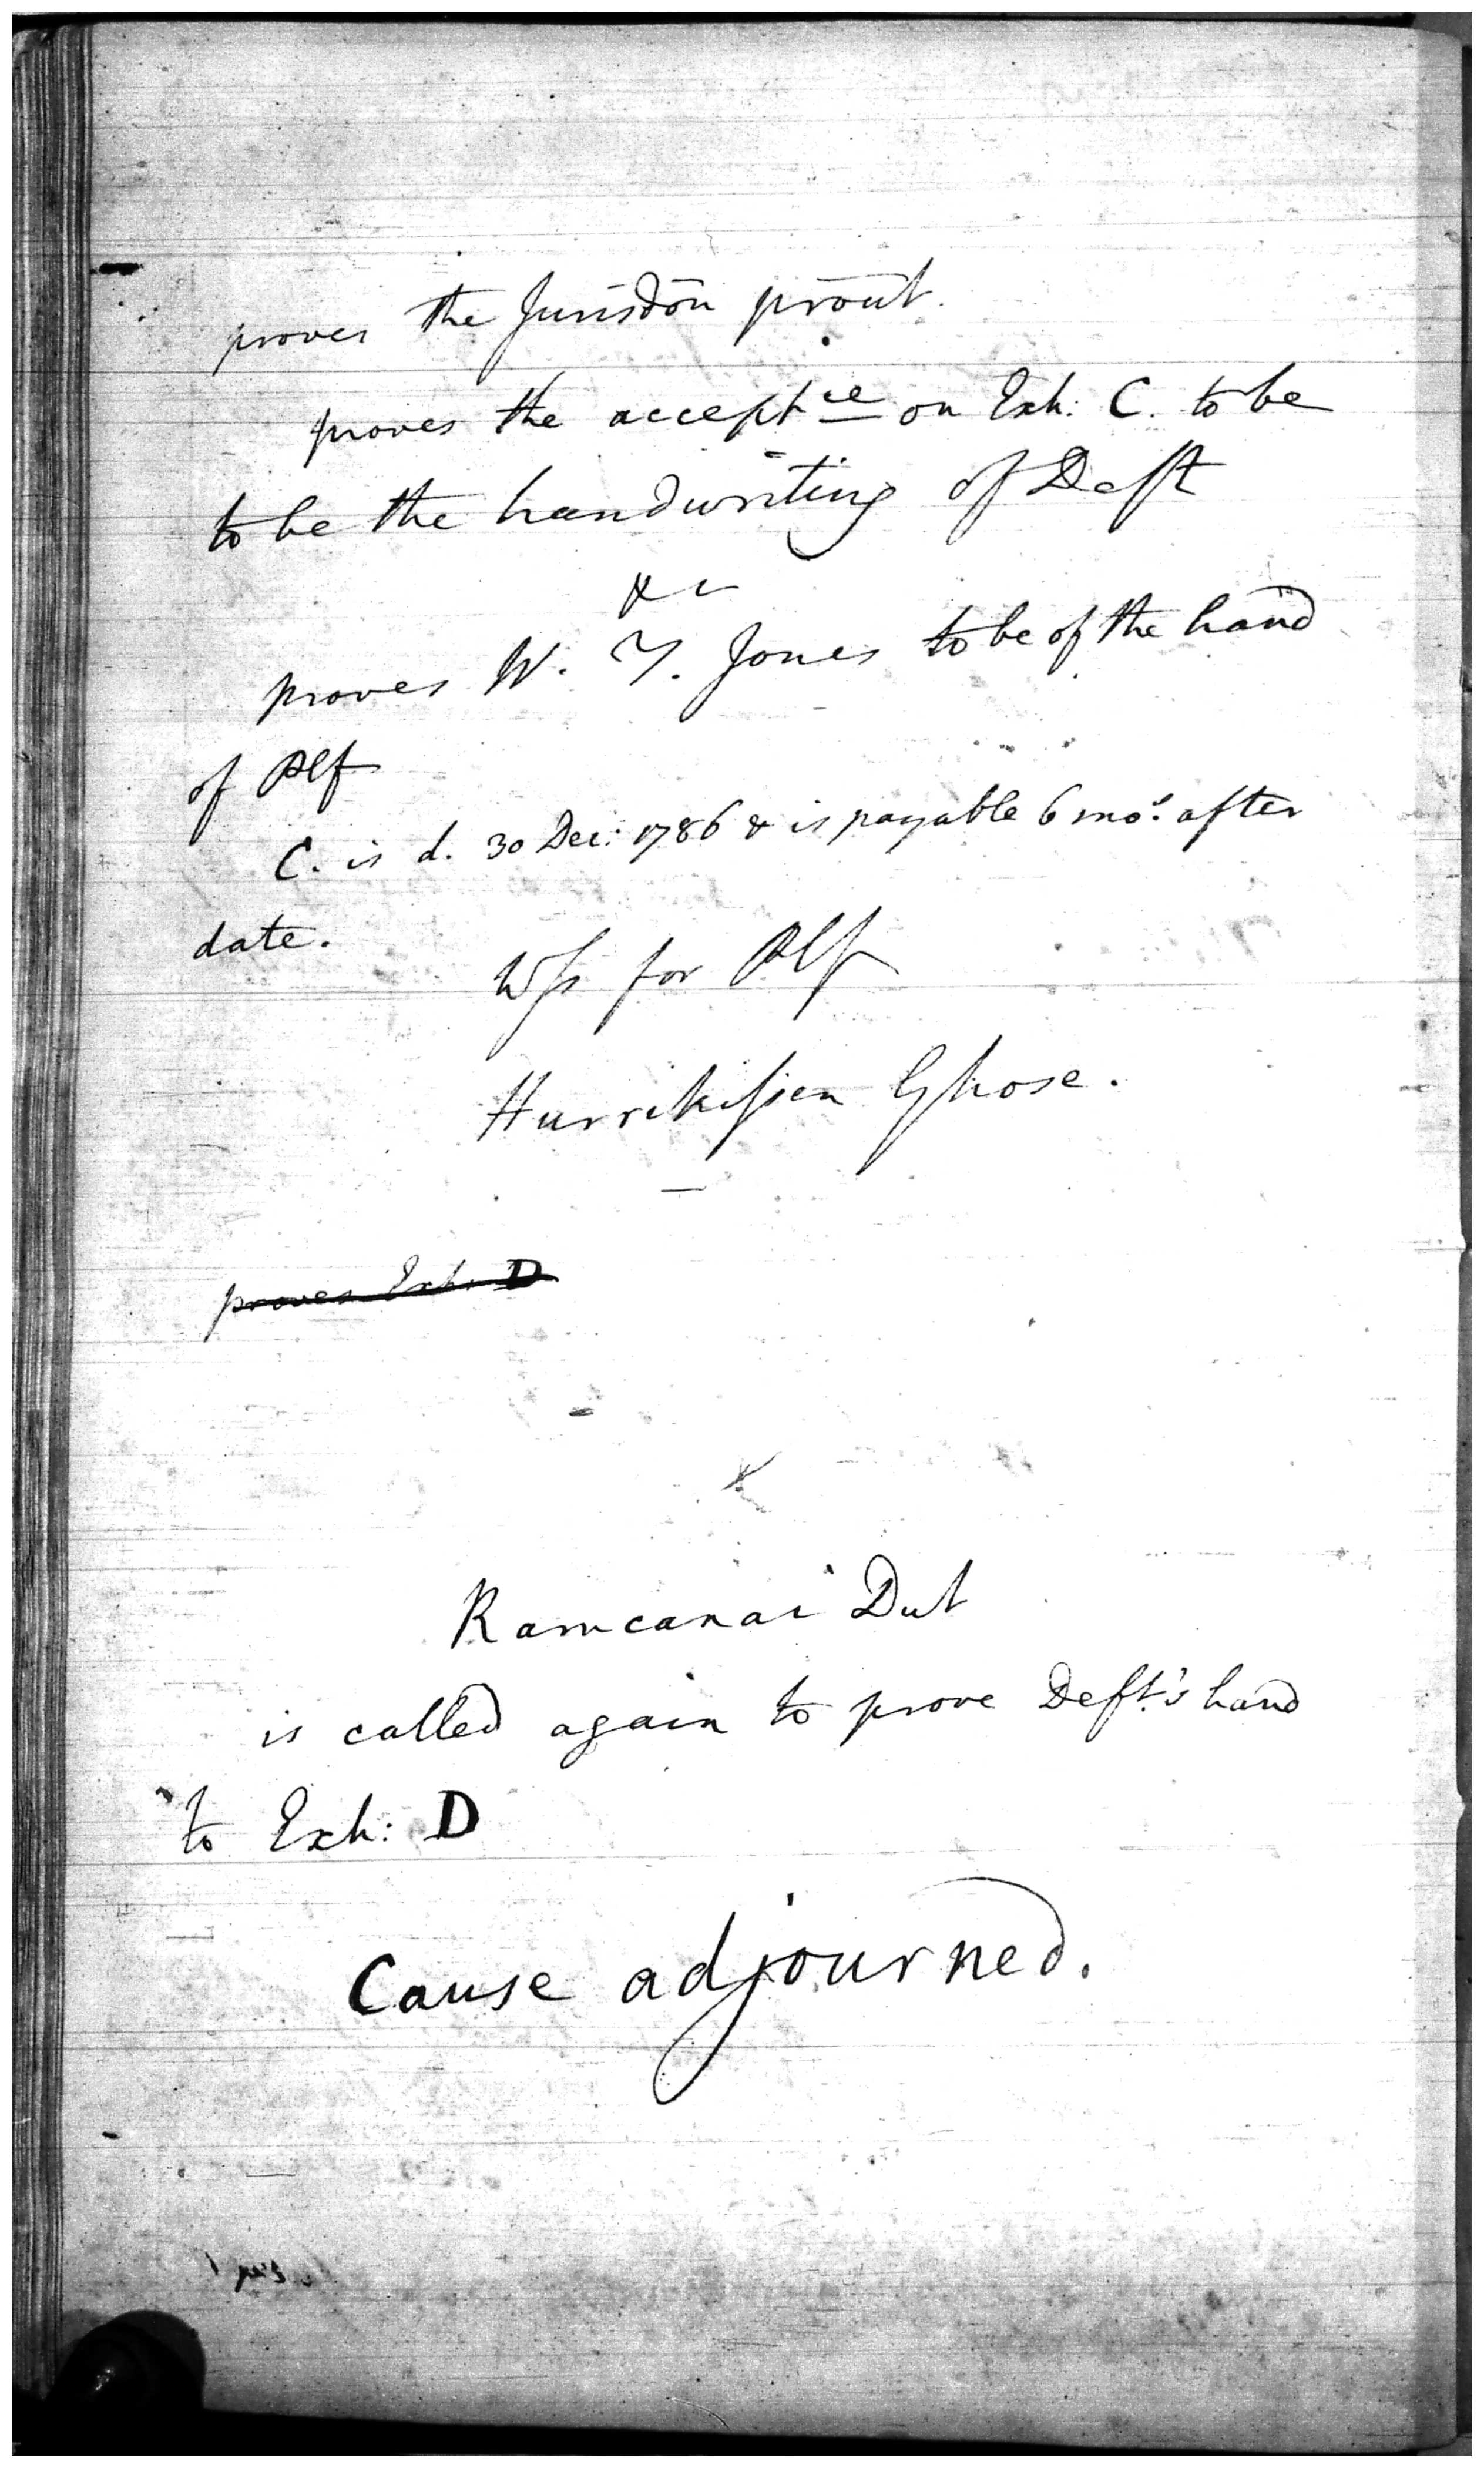 proves the Jurisdōn prōut.
proves the accept.ce on Exh: C. to be
to be the handwriting of Deft
&c
proves W. T. Jones to be of the hand
of Plf
C. is d. 30 Dec: 1786 & is payable 6 mo.s after
date.
Wſs for Plf
Hurrikiſsen Ghose.
proves Exh: D
Ramcanai Dut
is called again to prove Deft.'s hand
to Exh: D
Cause adjourned.